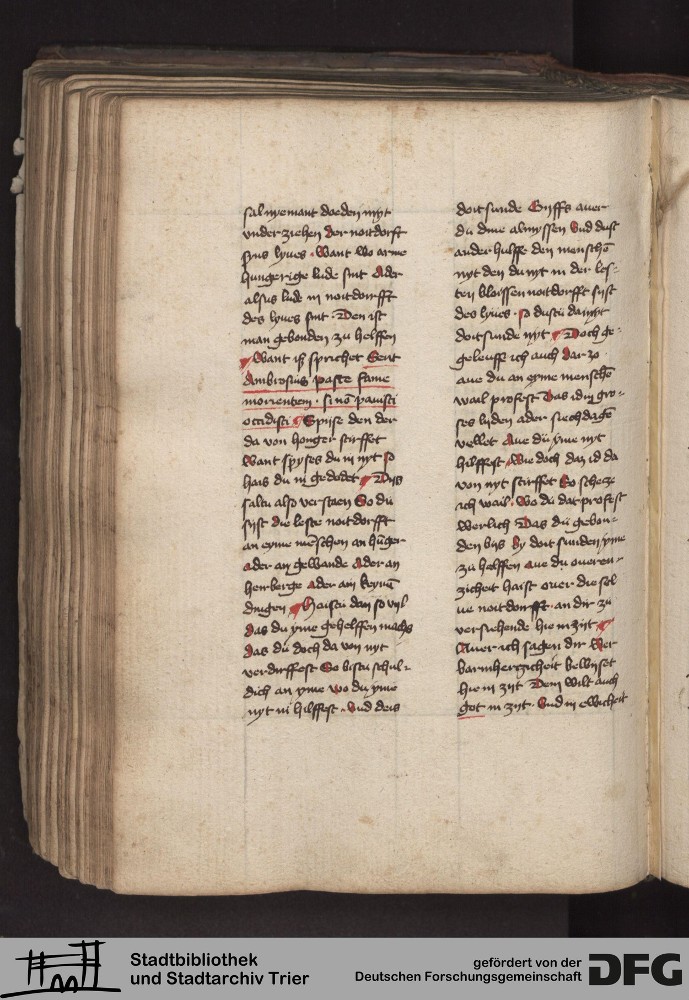 sal nyemant doeden nyt
vnder ziehen der noitdorfft
syns lyues · Want wo arme
hungerige lude sint Ader
alsus lude in noitdorfft
des lyues sint · Den ist
man gebonden zu helffen
Want iſs sprichet Sent
Ambrosius pasce fame
morientem · si nō pauisti
occidisti Spise den der
da von honger stirffet
Want spyses du in nyt so
hais du in gedodet Diis
saltu also verstaen So du
syst die leste noitdorfft
an eyme mēschen an hūger
Ader an gewande Ader an
herberge Ader an
dingen Haistu dan so vyl
das du yme gehelffen machs
das du doch da von nyt
verdirffest So bistu schul-
dich an yme wo du yme
nyt in hilffest · Vnd deis
doit sunde Gyffs auer
du dine almyssen vnd dust
ander hulffe den menschē
nyt den du nyt in der les-
ten bloissen noitdorfft syst
des lyues · so dustu da nyt
doit sunde nyt Doch ge-
geleuffe ich auch dar zo
aue du an eyme menschē
wail profest Das id in gro-
ses lyden ader siechdagē
vellet Aue du yme nyt
hilffest · Wie doch daz id da
von nyt stirffet So
ich wail · Wo du dat profest
werlich Das du gebon-
den biis by doit sunden yme
zu helffen aue du oueren-
zicheit haist ouer die sel
ue noitdorfft · an dir zu
versiehende hie in zyt
Auer ich sagen dir Wer
barmhergicheit bewyset
hie in zyt Dem wilt auch
got in zyt · Vnd in ewicheit
Stadtbibliothek
und Stadtarchiv Trier
gefördert von der
Deutschen Forschungsgemeinschaft
DFG